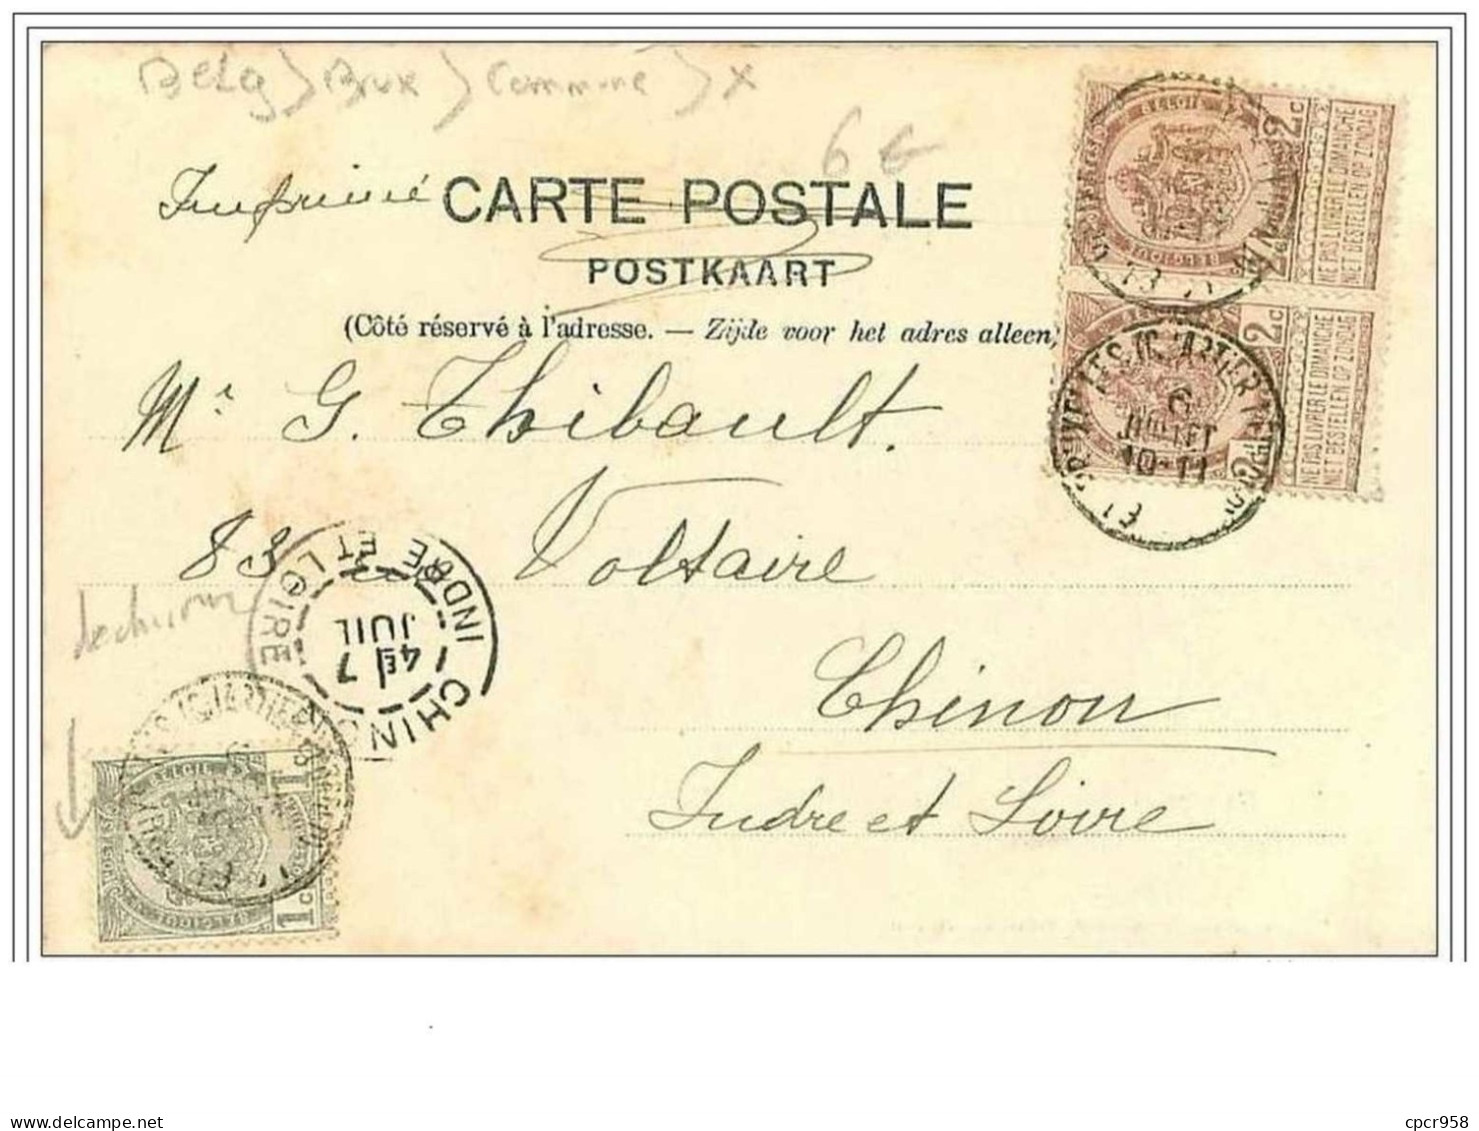 Belg) Brux) Commune) X
6 €
Imprimé
CARTE POSTALE
POSTKAART
(Côté réservé à l'adresse. — Zijde voor het adres alleen)
Mr G. Thibault.
83 Voltaire
Chinon
Indre et Loire
BELGIE
BELGIQUE
2c
NE PAS LIVRER LE DIMANCHE
NET BESTELLEN OP ZONDAG
BELGIE
2c
NE PAS LIVRER LE DIMANCHE
NET BESTELLEN OP ZONDAG
6
JUILLET
10-11
CHINON
INDRE ET LOIRE
4E
7
JUIL
déchirure
BELGIE
BELGIQUE
1c
delcampe.net
cpcr958